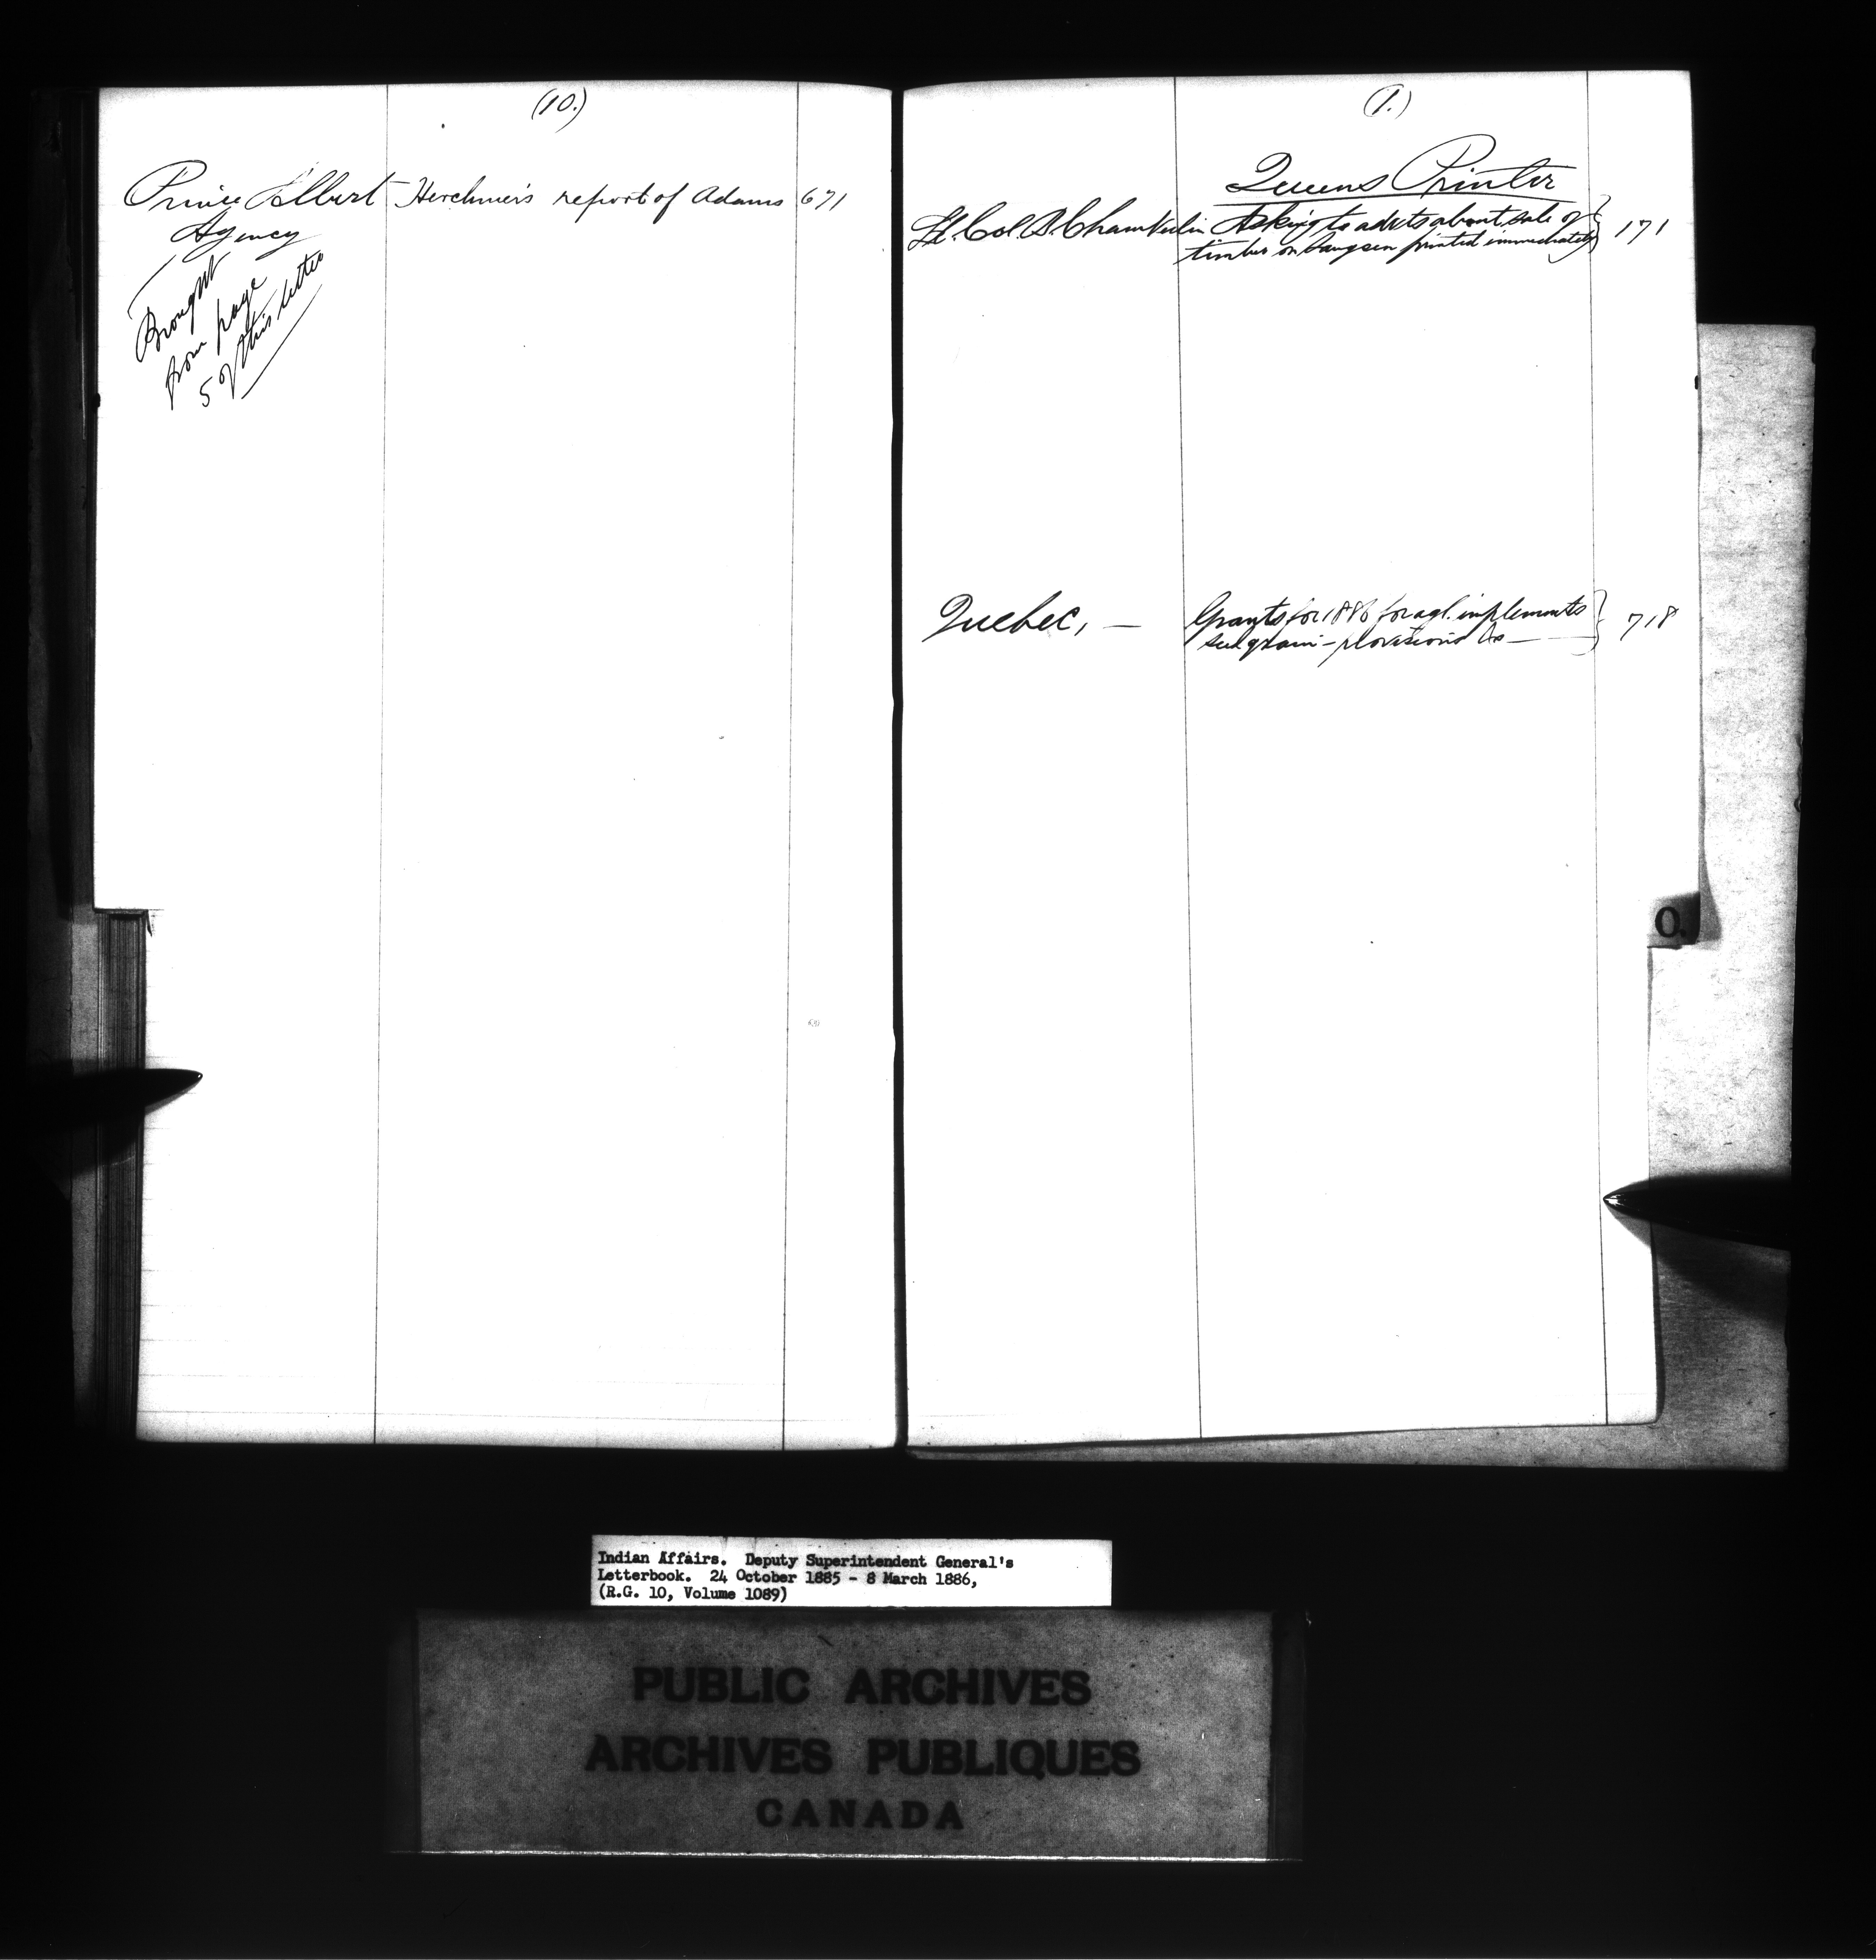 (10.)
Prince Albert Herchmer's report of Adams 671
Agency
Brought
from page
5 of this letter
(1.)
Queens Printer
Lt. Col. B. Chamberlin Asking to advts about sale of 171
timber on Saugeen printed immediately
Quebec, — Grants for 1886 for agl. implements 718
seed grain - provisions &c —
Q.
Indian Affairs. Deputy Superintendent General's
Letterbook. 24 October 1885 - 8 March 1886,
(R.G. 10, Volume 1089)
PUBLIC ARCHIVES
ARCHIVES PUBLIQUES
CANADA